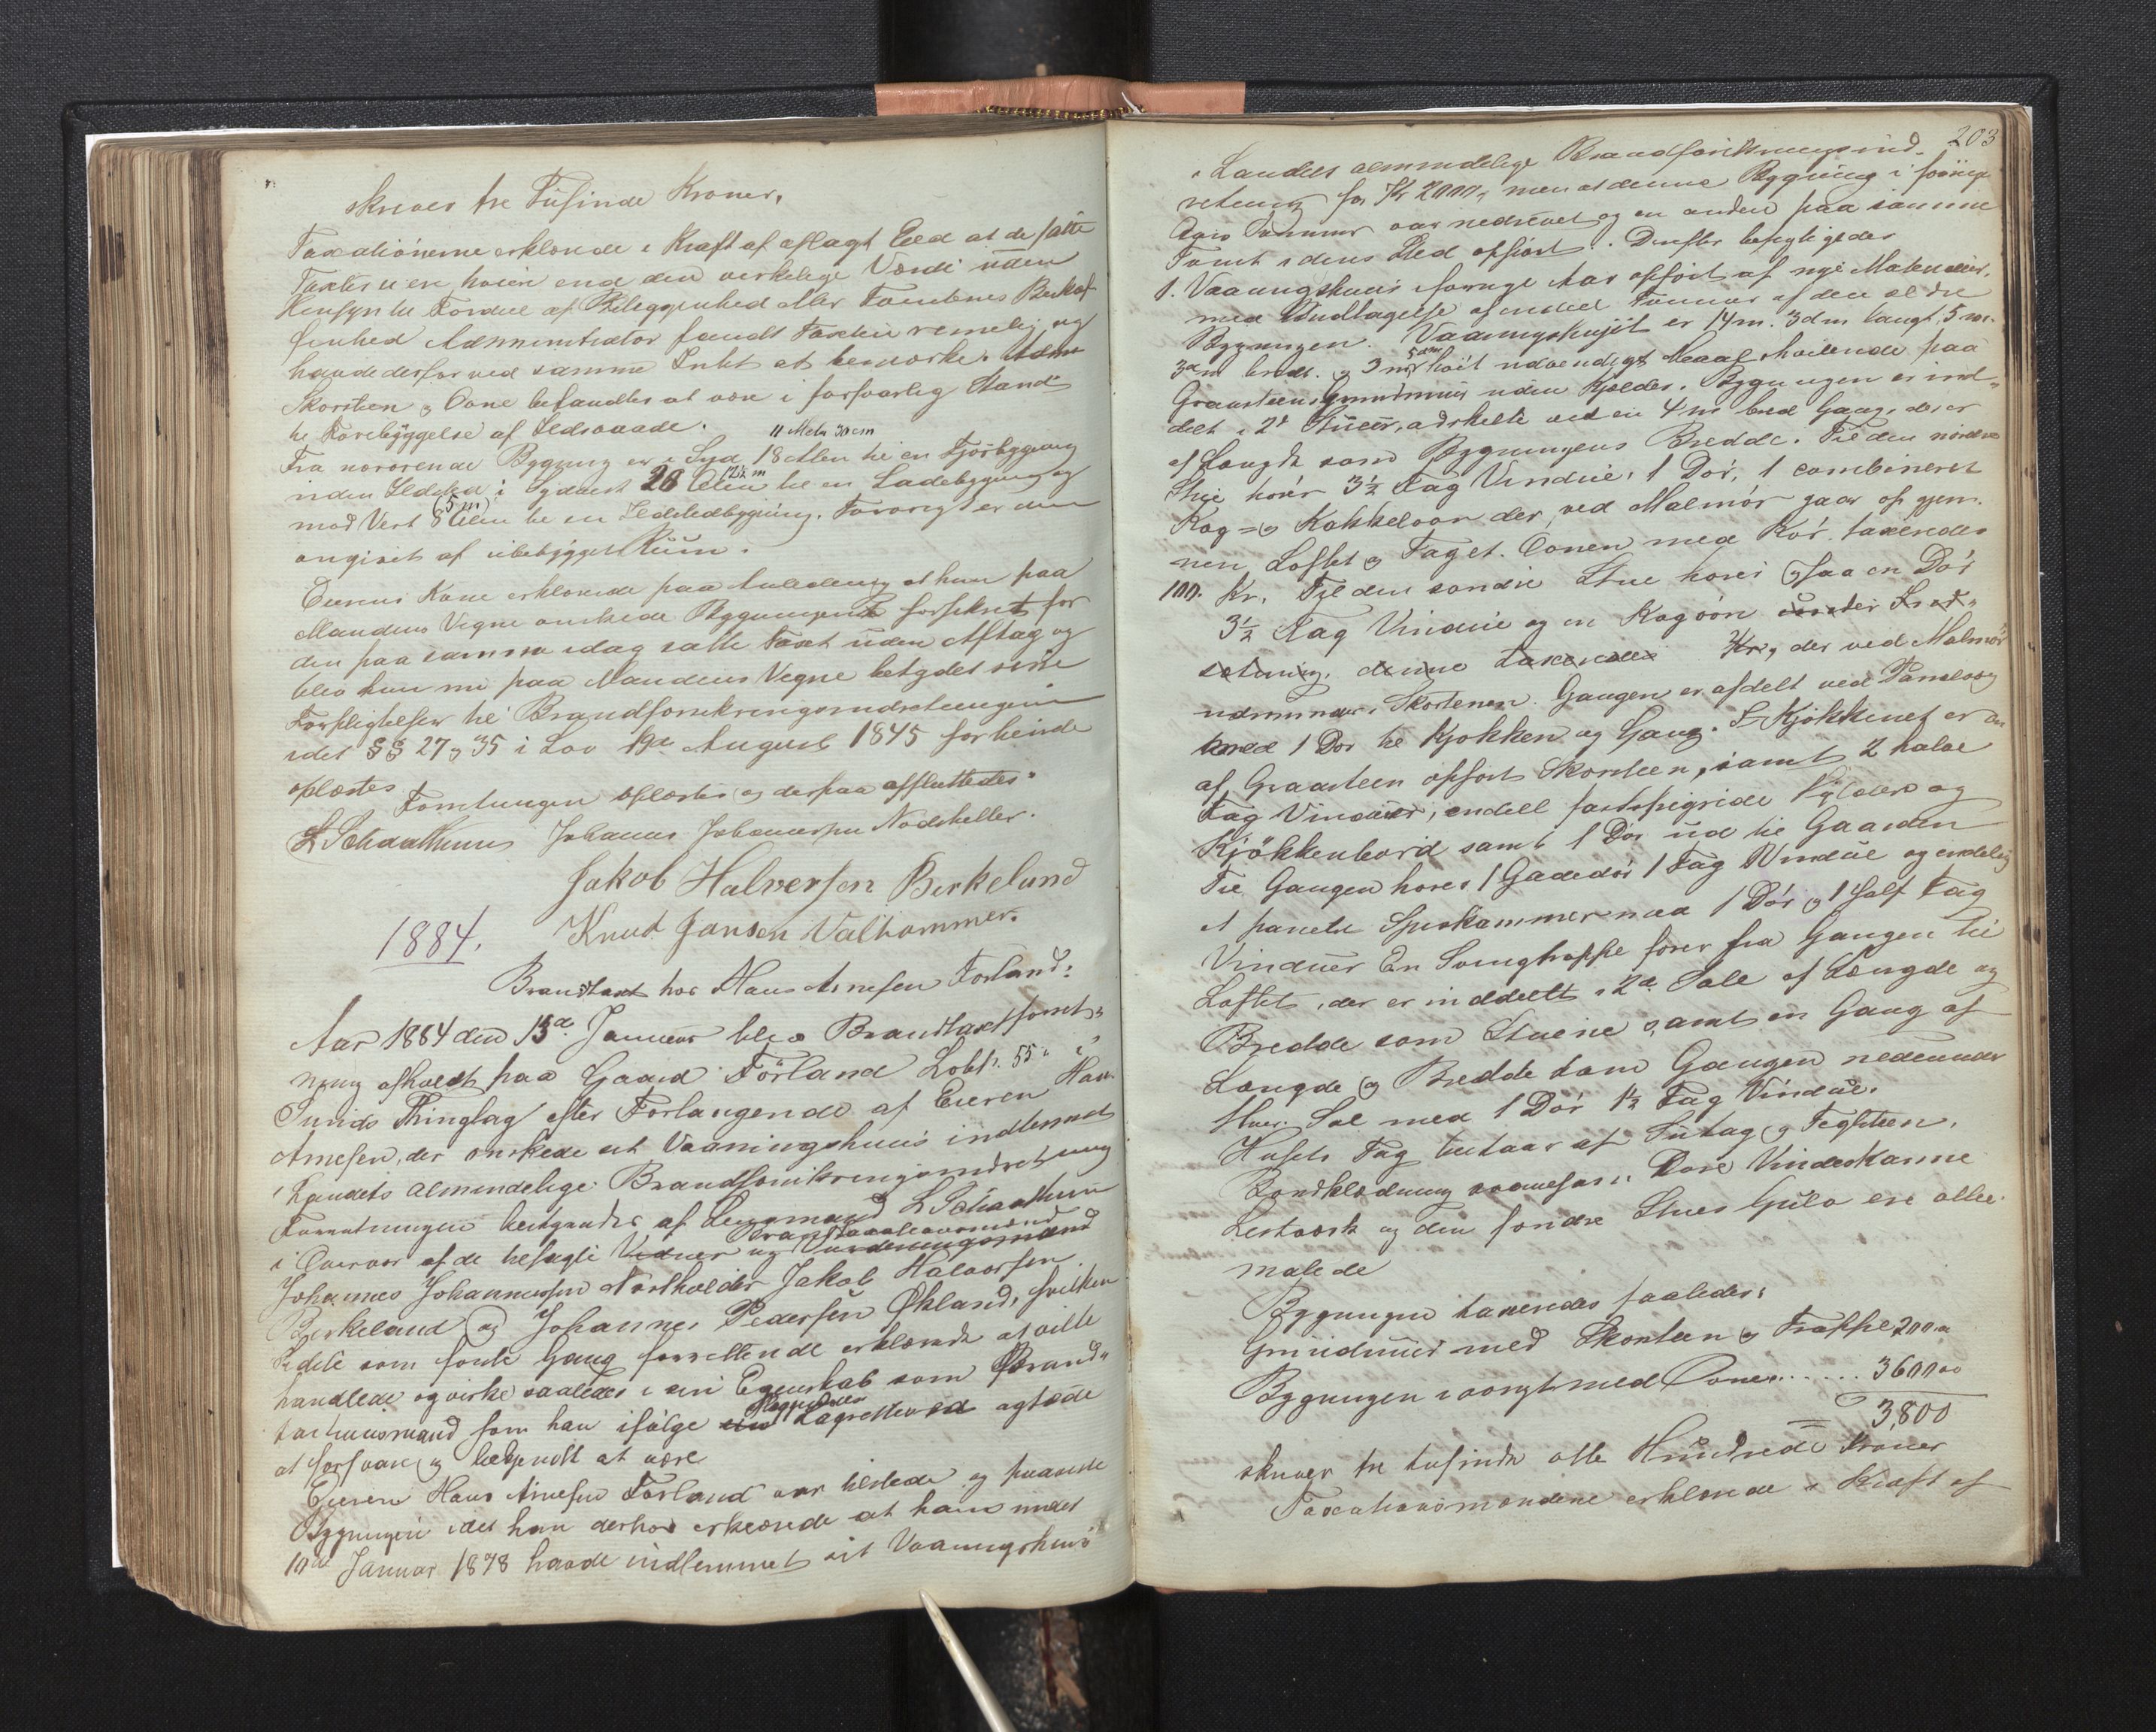 skriver tre Tusinde Kroner,
Taxationerne erklærede i Kraft af aflagt Eed at de satte
Taxter ei ere høiere end den verkelige Værdi uden
Hensyn til Fordeel af Beleggenhed eller Tomtenes Beskaf
fenhed Administrator fandt Taxten rimelig og
havde derfor ved samme Intet at bemærke.
Skorsteen og Ovne befandtes at være i forsvarlig Stand
til Forebyggelse af Ildsvaade.
11 Meter 30 cm
Fra nærværende Bygning er i Syd 18 Alen til en Fjøsbygning
uden Ildsted i Sydvest 20 Alen til en Ladebygning og
12½ m
mod Vest 8 Alen til en Ildstedbygning. Forøvrigt er den
(5 m)
omgivet af ubebygget Rum.
Eierens Kone erklærede paa Anledning at hun paa
Mandens Vegne ønskede Bygningen forsikret for
den paa samme idag satte Taxt uden Aftag og
blev hun nu paa Mandens Vegne betydet sine
Forpligtelser til Brandforsikringsindretningen
idet §§ 27 og 35 i Lov 19de August 1845 for hende
oplæstes
Forretningen oplæstes og derpaa afsluttedes.
L Schaathuun Johannes Johannessen Nodtheller.
Jakob Halversen Birkeland
Knud Jansen Valhammer.
1884.
Brandtaxt hos Hans Arnesen Førland:
Aar 1884 den 15d Januar blev Brandtaxtforret-
ning afholdt paa Gaard Førland Løbn. 55 i
Sunds Thinglag efter Forlangende af Eieren Hans
Arnesen, der ønskede sit Vaaningshuus indlemmet
i Landets almindelige Brandforsikringsindretning
Forretningen bestyredes af Lensmand L Schaathun
i Overvær af de befragte Vidner og Vurderingsmænd
Brandtaxationsmænd
Johannes Johannessen Nodthelder Jakob Halvorsen
Birkeland og Johannes Pedersen Økland, hvilken
Sidste som første Gang forrettende erklærede at ville
handlede og virke saaledes i sin Egenskab som Brand-
taxtionsmand som han ifølge sin Lagretteeed agtede
at forsvare og bekjendt at være
Eieren Hans Arnesen Førland var tilstede og paaviste
Bygningen idet han derhos erklærede at han under
10de Januar 1878 havde indlemmet sit Vaaningshuus
203
i Landets almindelige Brandforsikringsind-
retning for Kr 2000, men at denne Bygning i forrige
Aars Sommer var nedrevet og en anden paa samme
Tomt i dens Sted opført. Derefter besigtigedes
1. Vaaningshuus i forrige Aar opført af nye Materialier,
med Undtagelse af endeel Tømmer af den ældre
Bygningen. Vaaningshuset er 14 m. 3 dm langt, 5 m.
3 dm bredt. og 3 m 5 dm høit udvendigt Maal hvilende paa
Graasteens Grundmuur uden Kjælder. Bygningen er ind-
delt i 2de Stuer, adskilte ved en 4 m bred Gang, der er
af Længde som Bygningens Bredde. Til den nordre
Stue hører 3½ Fag Vindue, 1 Dør, 1 combineret
Kog- og Kakkelovn der, ved Malmrør gaar op gjen-
nem Loftet og Taget. Ovnen med Rør taxeredes
100. Kr. Til den søndre Stue hører ogsaa en Dør
3½ Fag Vindue og en Kogovn
sætning, denne taxeredes Kr, der ved Malmrør
udmunder i Skorstenen. Gangen er afdelt ved Panelvæg
med 1 Dør til Kjøkken og Gang. I Kjøkkenet er en
af Graasteen opført Skorsteen, samt 2 halve
Fag Vinduer, endell fastspigrede Hylder og
Kjøkkenbord samt 1 Dør ud til Gaarden
Til Gangen hører 1 Gadedør 1 Fag Vindue og endelig
et panelt Spiskammer med 1 Dør og 1 half Fag
Vinduer En Svingtrappe fører fra Gangen til
Loftet, der er inddeelt i 2de Sale af Længde og
Bredde som Stuerne samt en Gang af
Længde og Bredde som Gangen nedenunder
Hver Sal med 1 Dør 1½ Fag Vindue.
Husets Tag bestaar af Sutag og Teglsteen.
Bordklædning Døre Vindeskarme
Listværk og den søndre Stues Gulv ere alle
malede
Bygningen taxeredes saaledes:
Grundmuur med Skorsteen og Trappe 200
Bygningen iøvrigt med Ovne ...... 3600
3,800
skriver tre tusinde otte Hundrede Kroner
Taxationsmændene erklærede i Kraft af